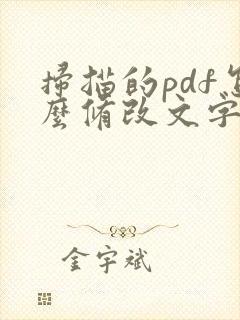 掃描的pdf怎
麼修改文字
金宇斌